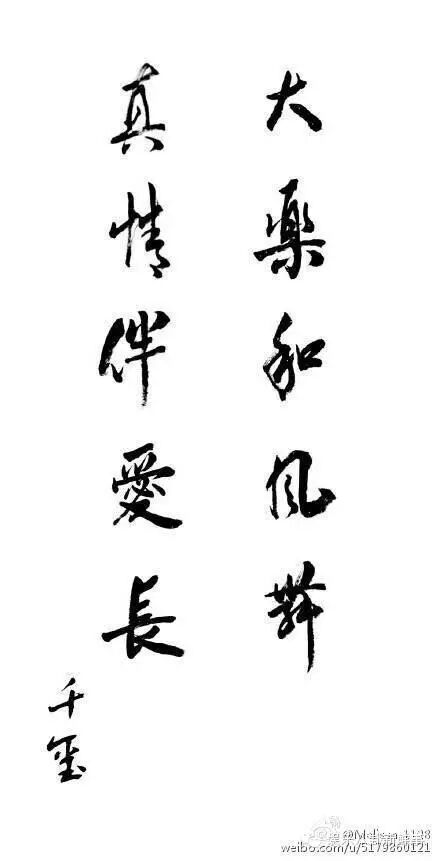 大樂和風舞
真情伴愛長
千璽
weibo.com/u/5179860121